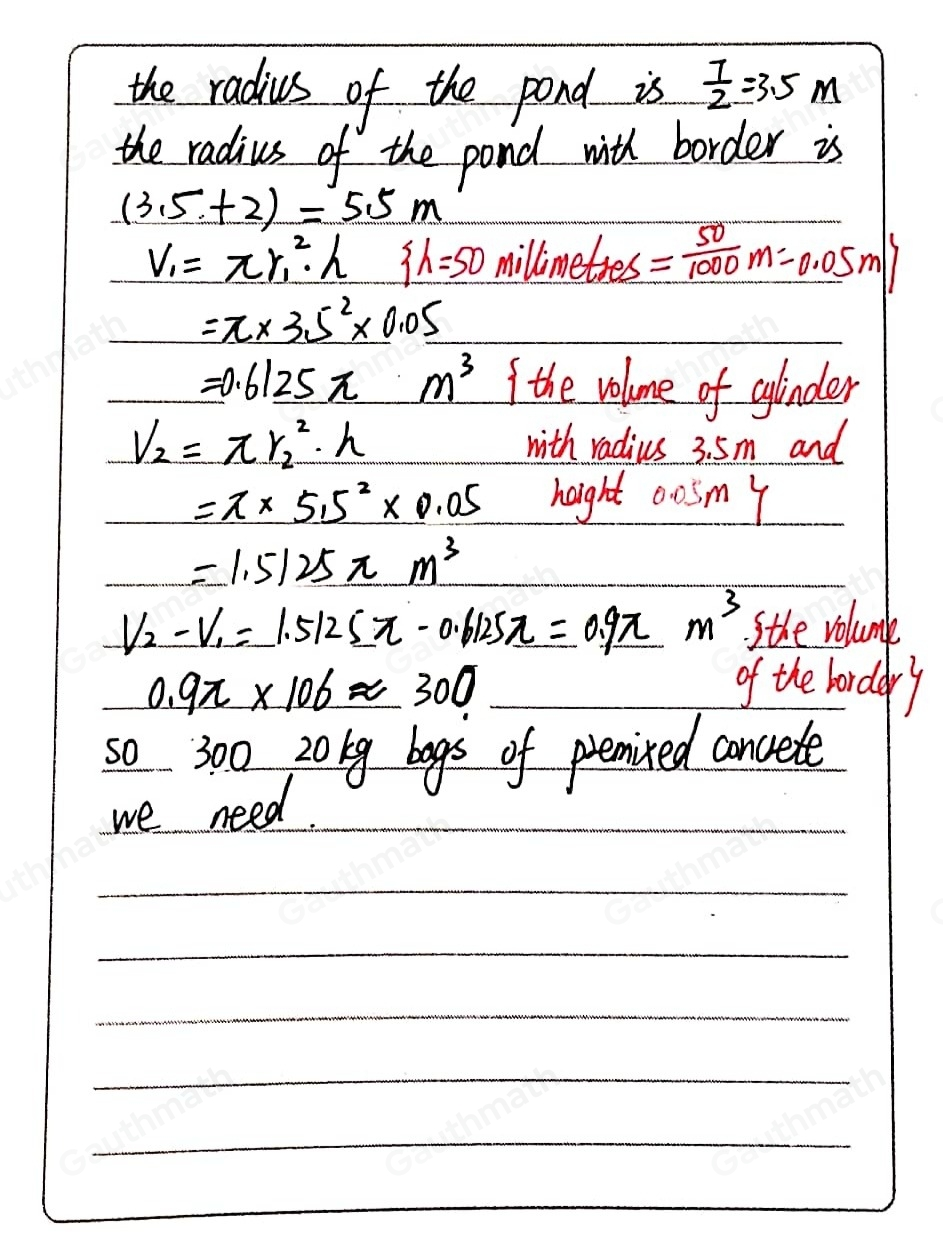 the radius of the pond is 7/2=3.5 m
the radius of the pond with border is
(3.5+2) = 5.5 m
V₁ = πr₁²·h {h=50 millimetres = 50/1000 m=0.05m}
=π×3.5²×0.05
=0.6125π m³ {the volume of cylinder
V₂ = πr₂²·h with radius 3.5m and
=π× 5.5² × 0.05 height 0.05m}
=1.5125π m³
V₂-V₁= 1.5125π-0.6125π=0.9π m³ {the volume
0.9π×106≈ 300 of the border}
so 300 20kg bags of premixed concrete
we need.
Gauthmath